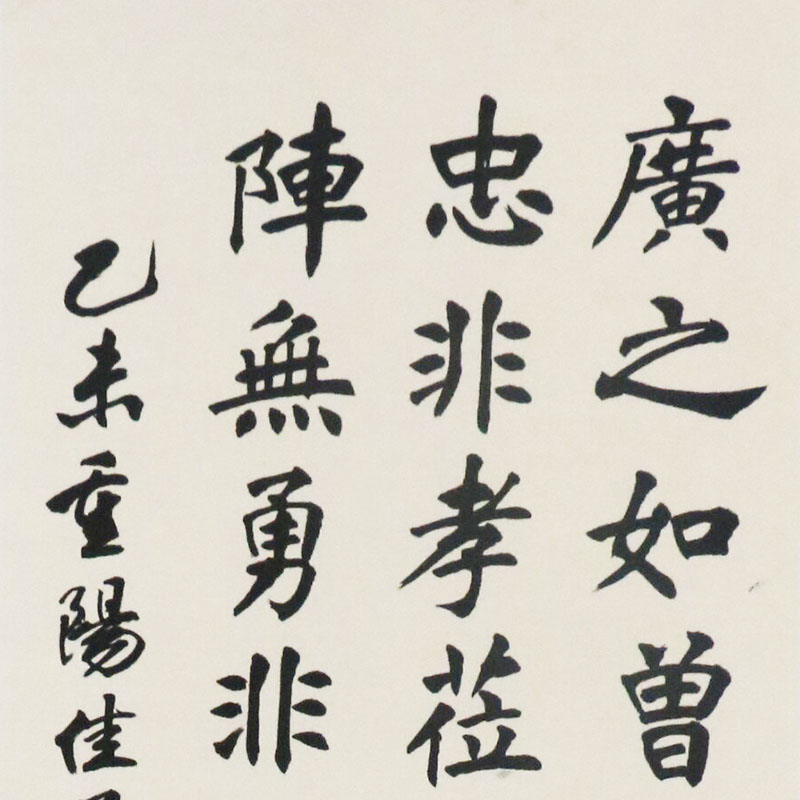 廣之如曾
忠非孝莅
陣無勇非
乙未重陽佳